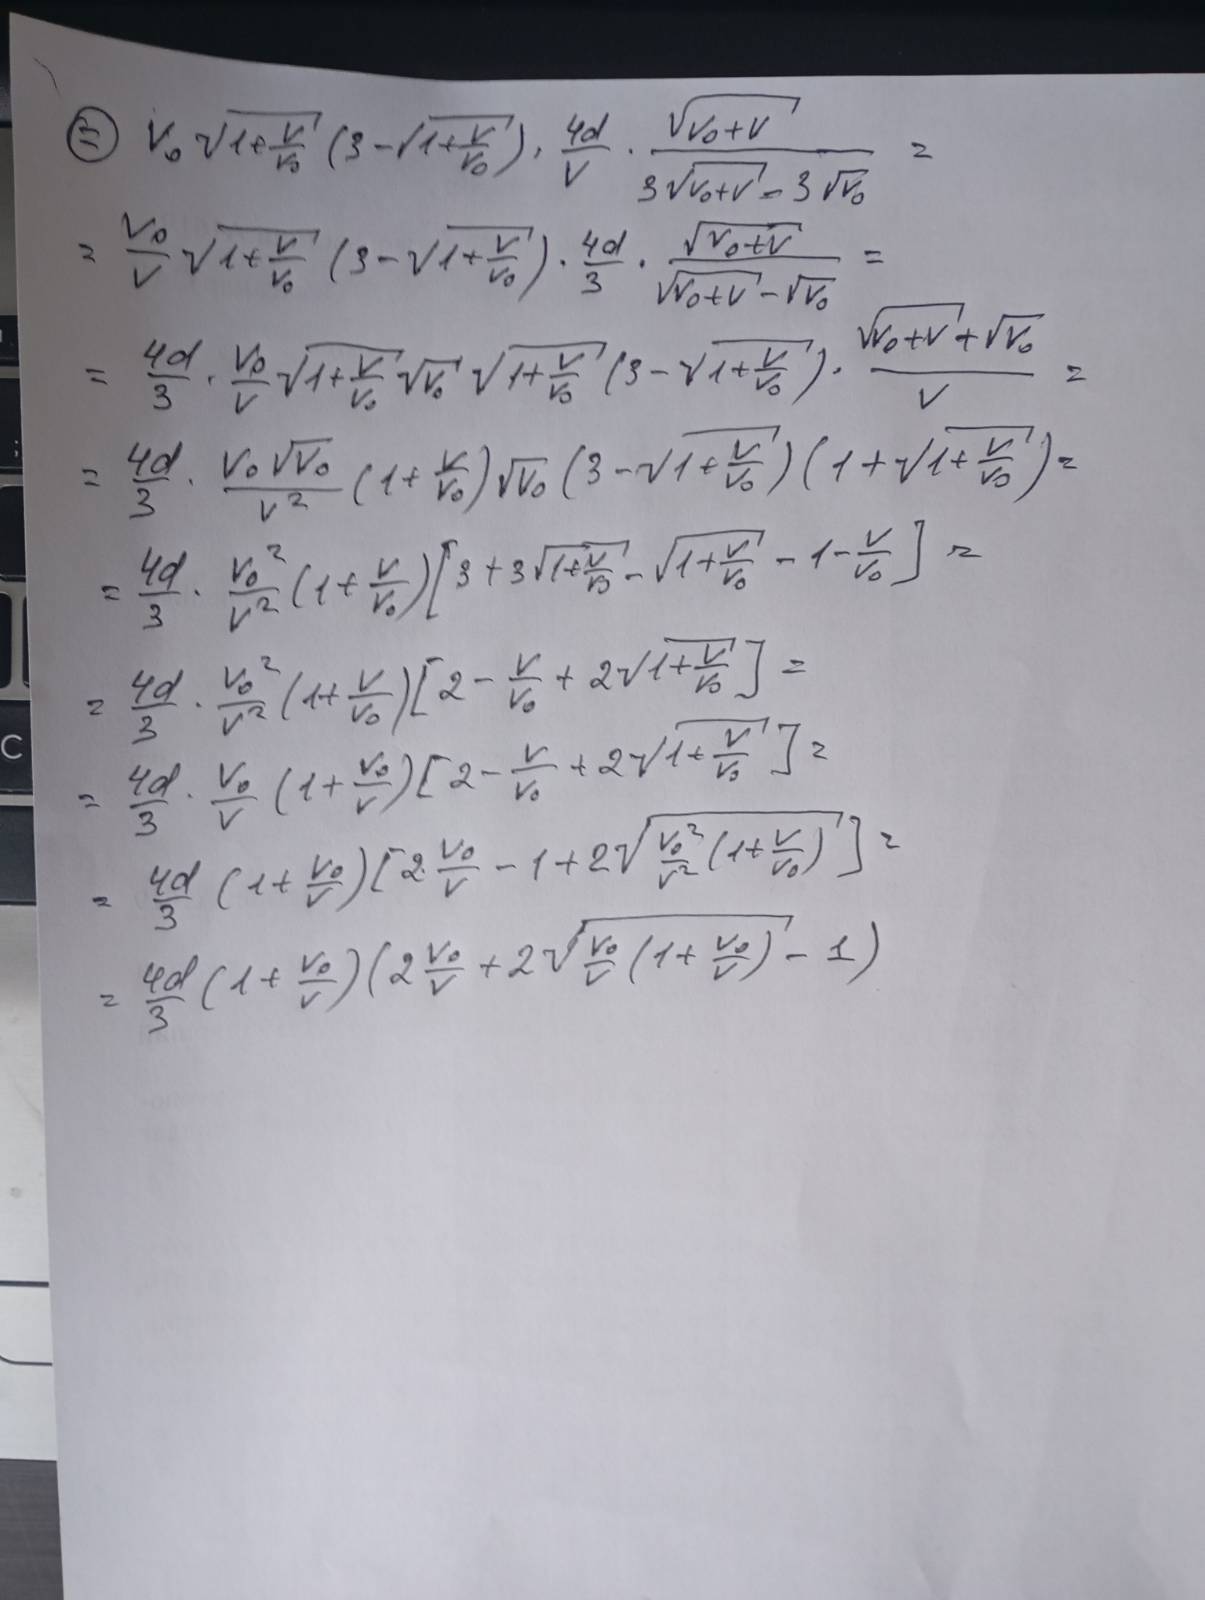 ⊜ V₀ √(1+V/V₀) (3-√(1+V/V₀)) · 4d/V · √(V₀+V) / (3√(V₀+V) - 3√V₀) =
= V₀/V √(1+V/V₀) (3-√(1+V/V₀)) · 4d/3 · √(V₀+V) / (√(V₀+V) - √V₀) =
= 4d/3 · V₀/V √(1+V/V₀) √V₀ √(1+V/V₀) (3-√(1+V/V₀)) · (√(V₀+V) + √V₀) / V =
= 4d/3 · V₀√V₀/V² (1+V/V₀) √V₀ (3-√(1+V/V₀)) (1+√(1+V/V₀)) =
= 4d/3 · V₀²/V² (1+V/V₀) [3+3√(1+V/V₀) - √(1+V/V₀) - 1 - V/V₀] =
= 4d/3 · V₀²/V² (1+V/V₀) [2 - V/V₀ + 2√(1+V/V₀)] =
= 4d/3 · V₀/V (1+V₀/V) [2 - V/V₀ + 2√(1+V/V₀)] =
= 4d/3 (1+V₀/V) [2·V₀/V - 1 + 2√(V₀²/V² (1+V/V₀))] =
= 4d/3 (1+V₀/V) (2V₀/V + 2√(V₀/V (1+V₀/V)) - 1)
C